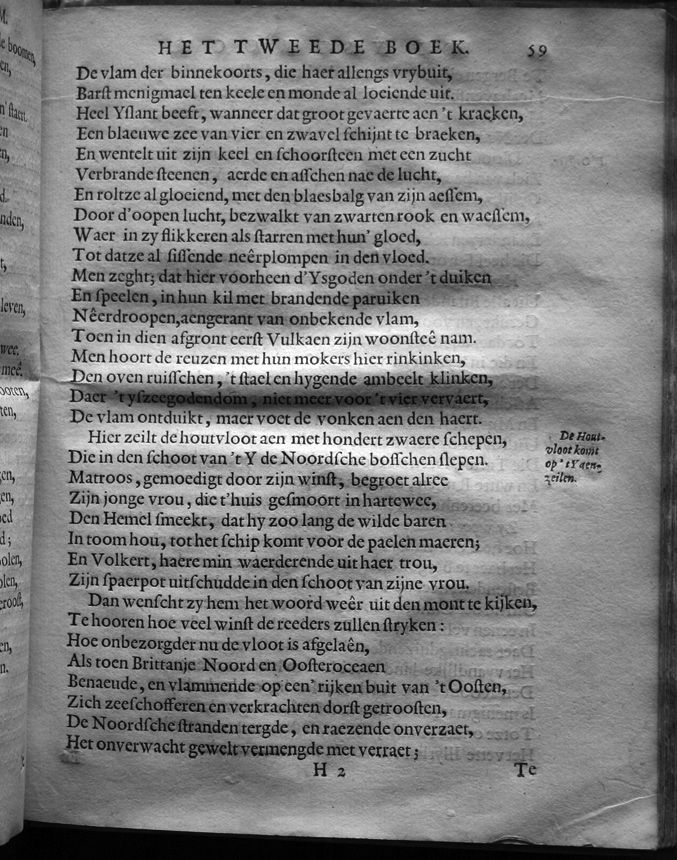 HET TWEEDE BOEK. 59
De vlam der binnekoorts, die haer allengs vrybuit,
Barſt menigmael ten keele en monde al loeiende uit.
Heel Yſlant beeft, wanneer dat groot gevaerte aen 't kraeken,
Een blaeuwe zee van vier en zwavel ſchijnt te braeken,
En wentelt uit zijn keel en ſchoorſteen met een zucht
Verbrande ſteenen, aerde en aſſchen nae de lucht,
En roltze al gloeiend, met den blaesbalg van zijn aeſſem,
Door d'oopen lucht, bezwalkt van zwarten rook en waeſſem,
Waer in zy flikkeren als ſtarren met hun' gloed,
Tot datze al ſiſſende neêrplompen in den vloed.
Men zeght; dat hier voorheen d'Ysgoden onder 't duiken
En ſpeelen, in hun kil met brandende paruiken
Nêerdroopen, aengerant van onbekende vlam,
Toen in dien afgront eerſt Vulkaen zijn woonſteê nam.
Men hoort de reuzen met hun mokers hier rinkinken,
Den oven ruiſſchen, 't ſtael en hygende ambeelt klinken,
Daer 't yſzeegodendom, niet meer voor 't vier vervaert,
De vlam ontduikt, maer voet de vonken aen den haert.
Hier zeilt de houtvloot aen met hondert zwaere ſchepen,
De Hout-
vloot komt
op 't Y aen-
zeilen.
Die in den ſchoot van 't Y de Noordſche boſſchen ſlepen.
Matroos, gemoedigt door zijn winſt, begroet alree
Zijn jonge vrou, die t'huis geſmoort in hartewee,
Den Hemel ſmeekt, dat hy zoo lang de wilde baren
In toom hou, tot het ſchip komt voor de paelen maeren;
En Volkert, haere min waerderende uit haer trou,
Zijn ſpaerpot uitſchudde in den ſchoot van zijne vrou.
Dan wenſcht zy hem het woord weêr uit den mont te kijken,
Te hooren hoe veel winſt de reeders zullen ſtryken:
Hoe onbezorgder nu de vloot is afgelaên,
Als toen Brittanje Noord en Ooſteroceaen
Benaeude, en vlammende op een' rijken buit van 't Ooſten,
Zich zeeſchofferen en verkrachten dorſt getrooſten,
De Noordſche ſtranden tergde, en raezende onverzaet,
Het onverwacht gewelt vermengde met verraet;
H 2 Te